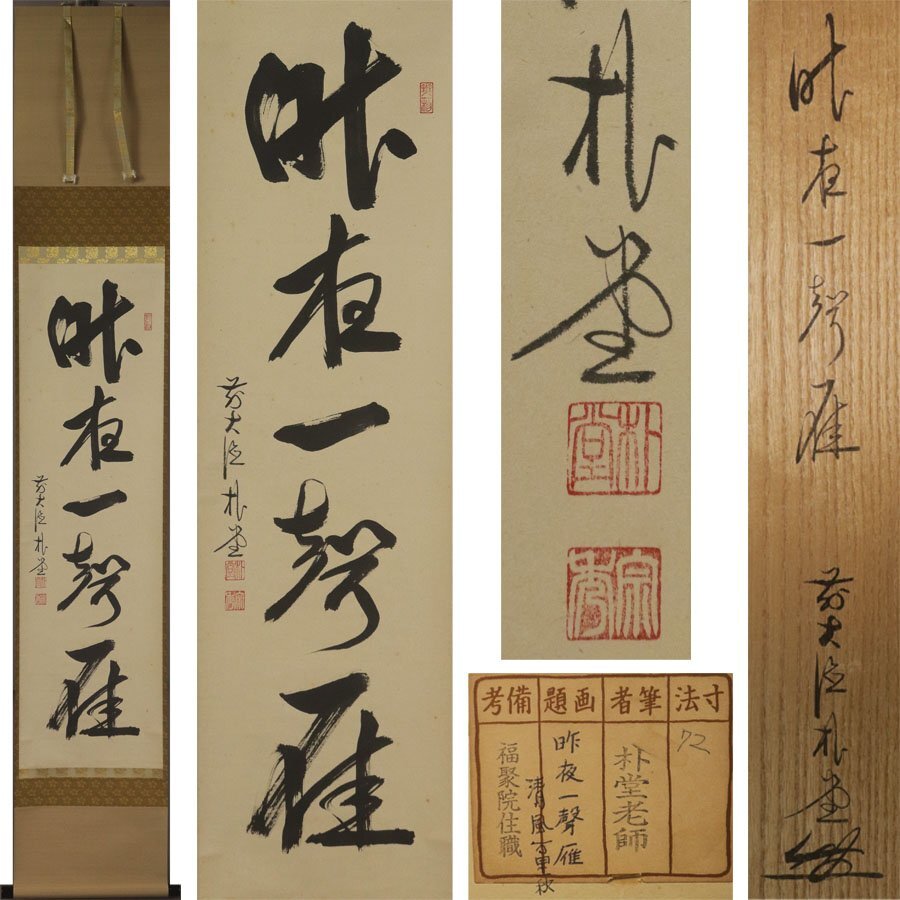 昨夜一聲雁
前大徳朴堂
昨夜一聲雁
前大徳朴堂
朴堂
朴堂
宗秀
昨夜一聲雁
前大徳朴堂
寸法
72
筆者
朴堂老師
画題
昨夜一聲雁
清風万里秋
備考
福聚院住職